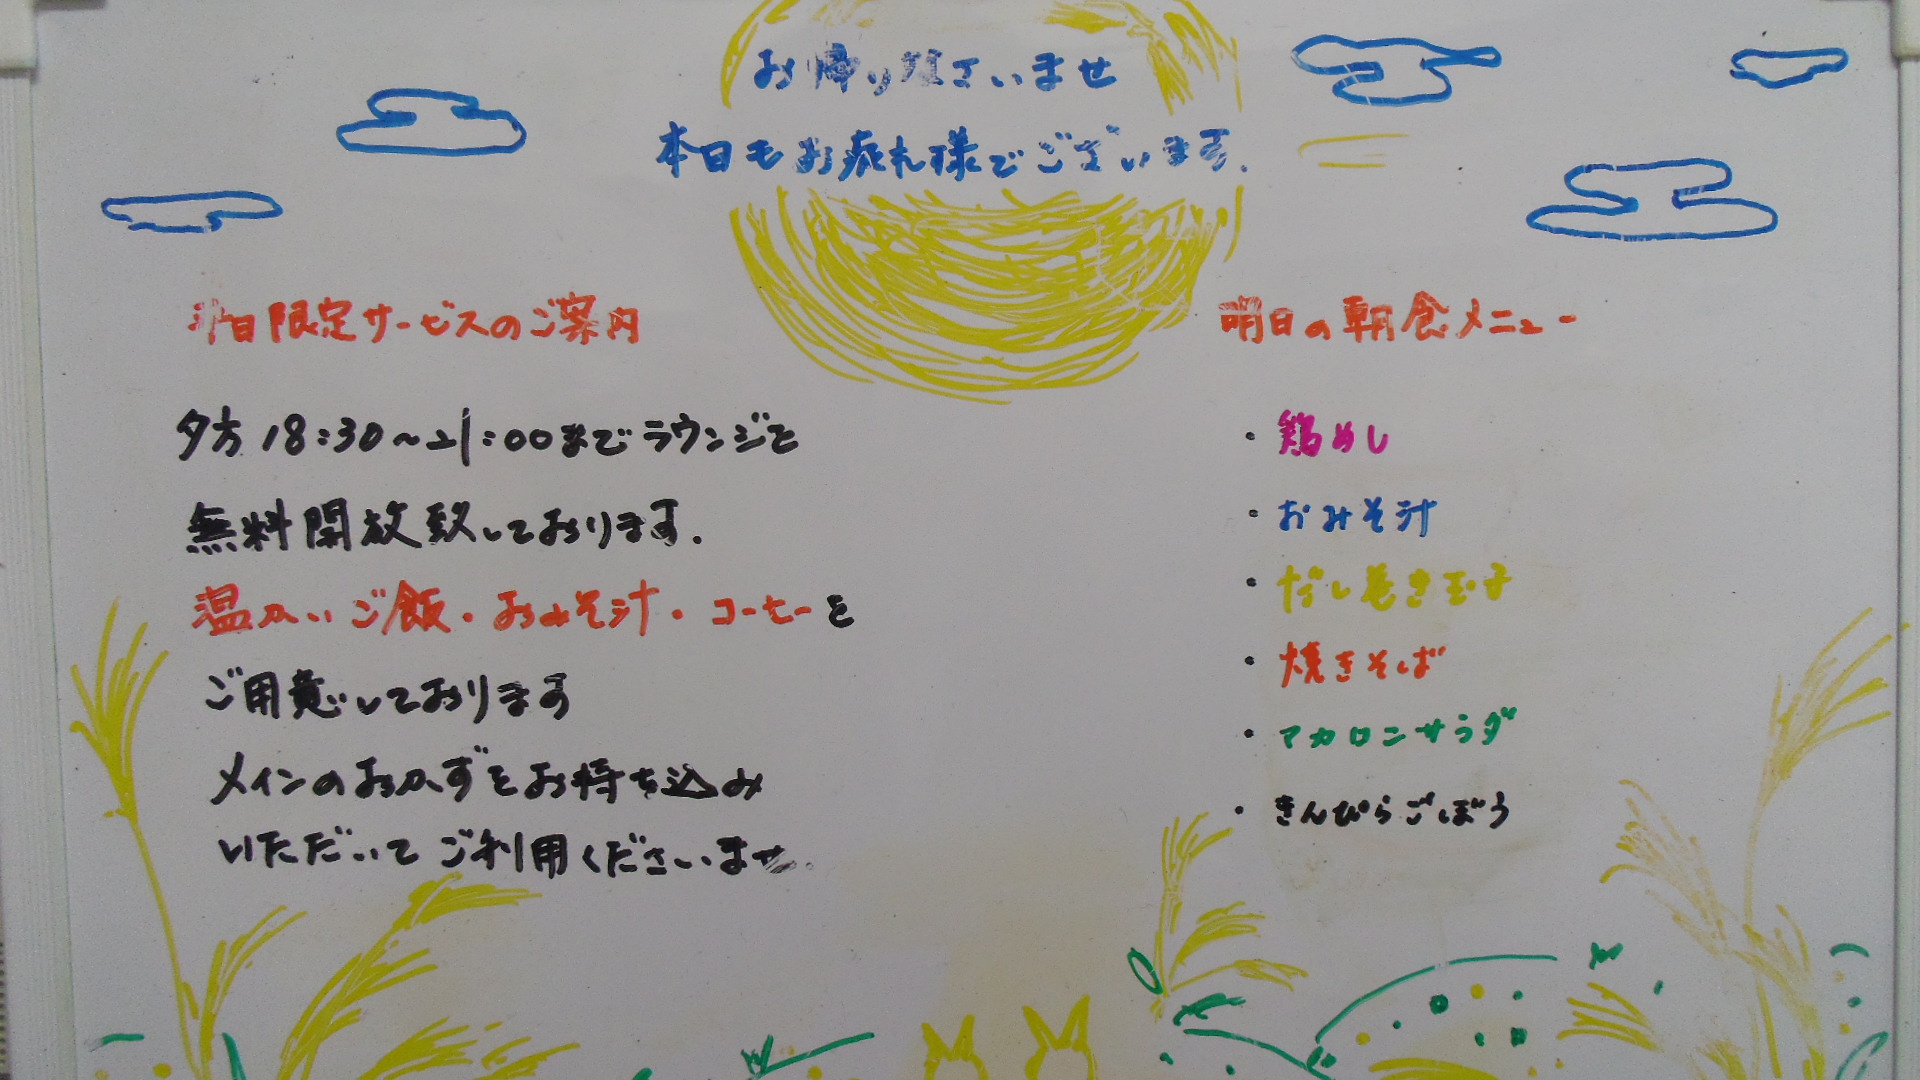 お帰り なさいませ
本日もお疲れ様でございます.
平日限定サービスのご案内
夕方 18:30～21:00までラウンジを
無料開放致しております.
温かいご飯・おみそ汁・コーヒーを
ご用意しております
メインのおかずをお持ち込み
いただいて ご利用くださいませ.
明日の朝食メニュー
・鶏めし
・おみそ汁
・だし巻き玉子
・焼きそば
・マカロンサラダ
・きんぴらごぼう